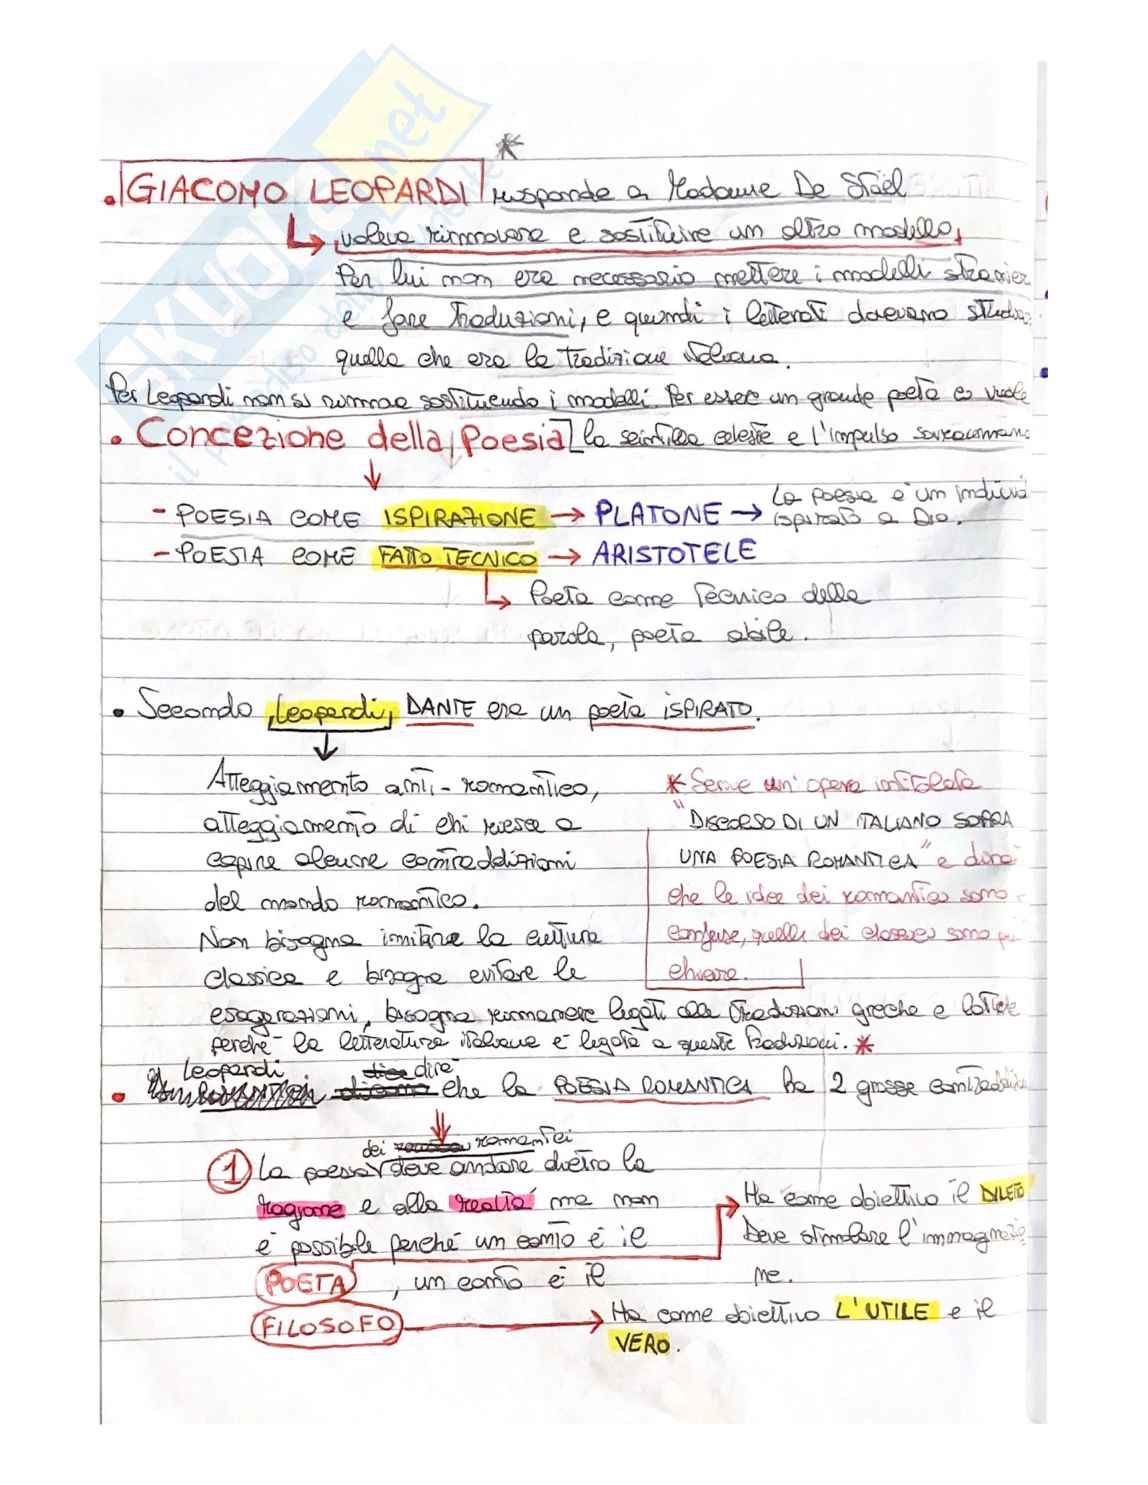 *
• GIACOMO LEOPARDI risponde a Madame De Stäel
voleva rinnovare e sostituire un altro modello,
Per lui non era necessario mettere i modelli stranier
e fare traduzioni, e quindi i letterati dovevano studia
quella che era la tradizione italiana.
Per Leopardi non si rinnova sostituendo i modelli. Per essere un grande poeta ci vuole
• Concezione della Poesia la scintilla celeste e l'impulso sovraumano
- POESIA COME ISPIRAZIONE → PLATONE → La poesia è un individ
ispirato a Dio.
- POESIA COME FATTO TECNICO → ARISTOTELE
Poeta come tecnico della
parola, poeta abile.
• Secondo Leopardi, DANTE era un poeta ISPIRATO.
Atteggiamento anti-romantico,
atteggiamento di chi riesce a
capire alcune contraddizioni
del mondo romantico.
Non bisogna imitare la cultura
classica e bisogna evitare le
* Scrive un'opera intitolata
"DISCORSO DI UN ITALIANO SOPRA
UNA POESIA ROMANTICA" e dirà
che le idee dei romantici sono
confuse, quelle dei classici sono più
chiare.
esagerazioni, bisogna rimanere legati alle tradizioni greche e latine
perché la letteratura italiana è legata a queste tradizioni. *
• Leopardi dirà che la POESIA ROMANTICA ha 2 grosse contraddizio
dei romantici
1 La poesia deve andare dietro la
ragione e alla realtà ma non
è possibile perché un conto è il
POETA, un conto è il
FILOSOFO
Ha come obiettivo il DILETO
Deve stimolare l'immaginazio
ne.
Ha come obiettivo L'UTILE e il
VERO.